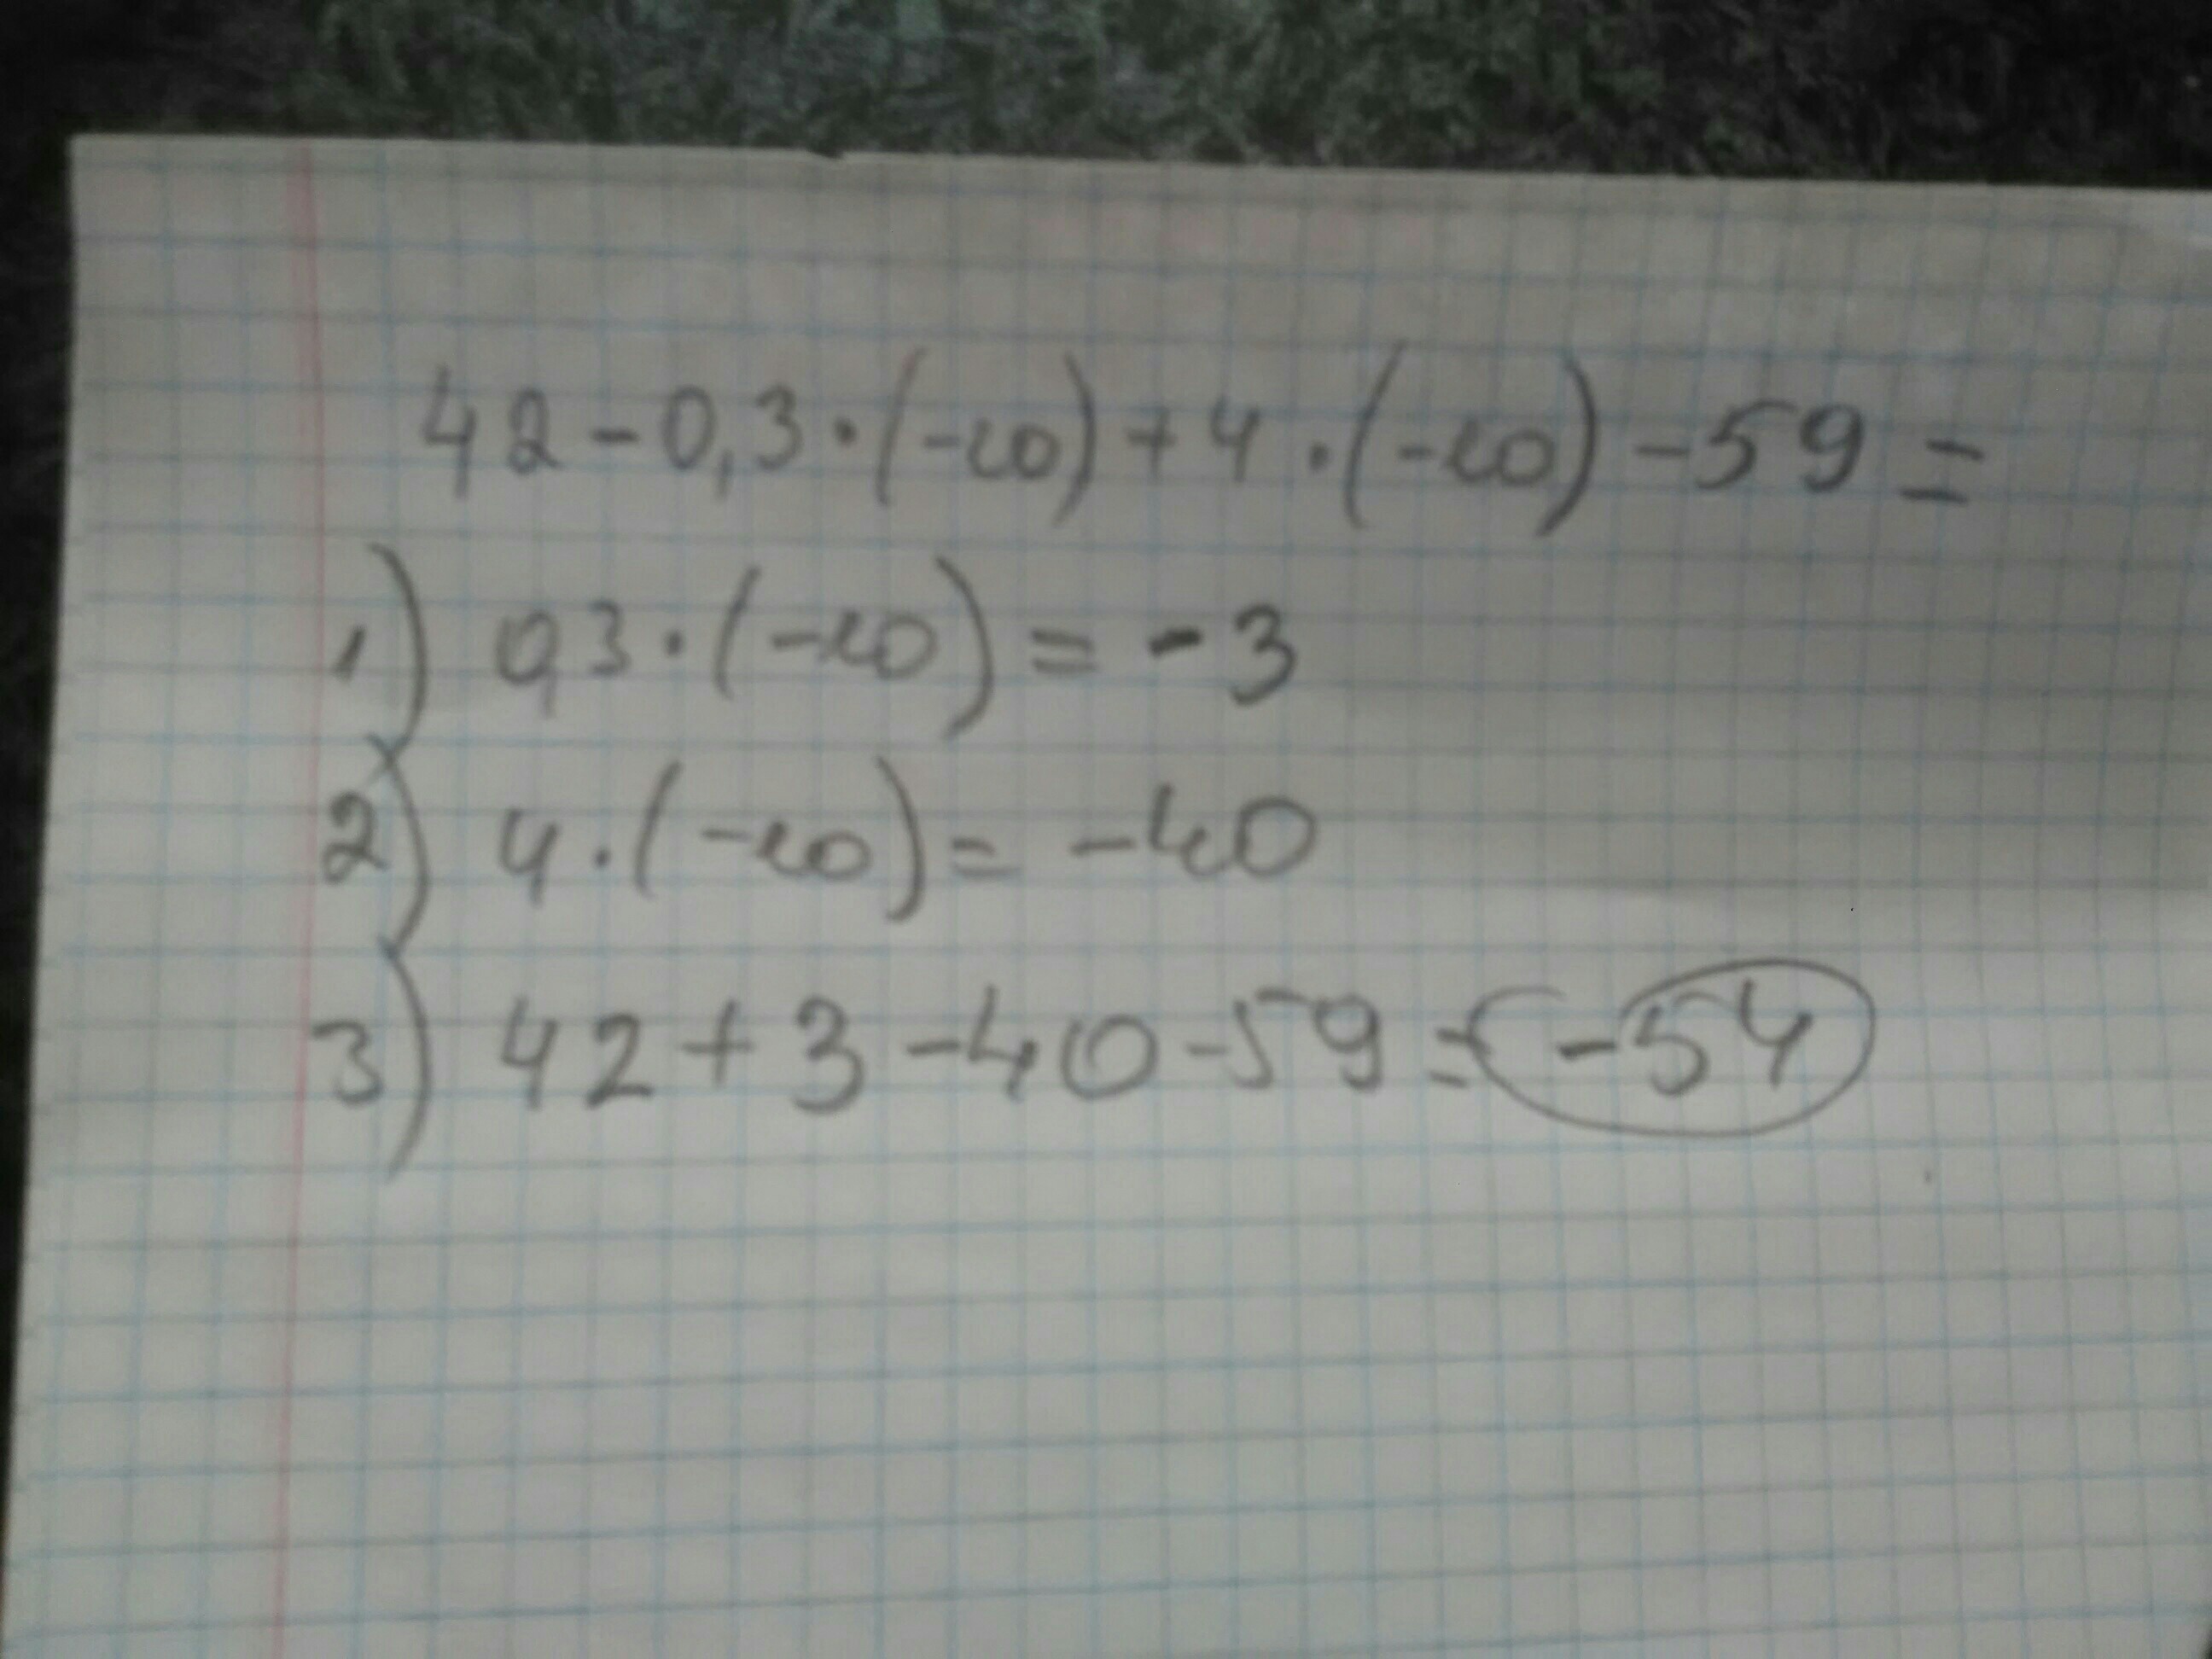 42-0,3·(-10)+4·(-10)-59=
1) 0,3·(-10)=-3
2) 4·(-10)=-40
3) 42+3-40-59=-54